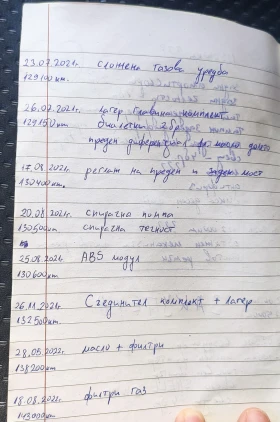 23.07.2021г. сложена газова уредба
129100км.
26.07.2021г. лагер главина комплект
129150км биалетки 2 броя
преден диференциал масло долно
17.08.2021г. регл на преден и заден мост
130400км.
20.08.2021г. спирачна помпа
130500км спирачна течност
25.08.2021г ABS модул
130600км.
26.11.2021г. Съединител комплект + лагер
132500км.
28.05.2022г. масло + филтри
138200км
18.08.2022г. филтри газ
143000км